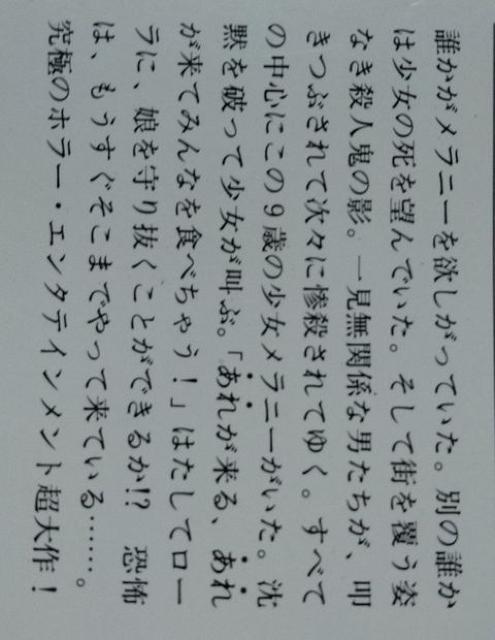 誰かがメラニーを欲しがっていた。別の誰か
は少女の死を望んでいた。そして街を覆う姿
なき殺人鬼の影。一見無関係な男たちが、叩
きつぶされて次々に惨殺されてゆく。すべて
の中心にこの9歳の少女メラニーがいた。沈
黙を破って少女が叫ぶ。「あれが来る、あれ
が来てみんなを食べちゃう！」はたしてロー
ラに、娘を守り抜くことができるか!?　恐怖
は、もうすぐそこまでやって来ている……。
究極のホラー・エンタテインメント超大作！